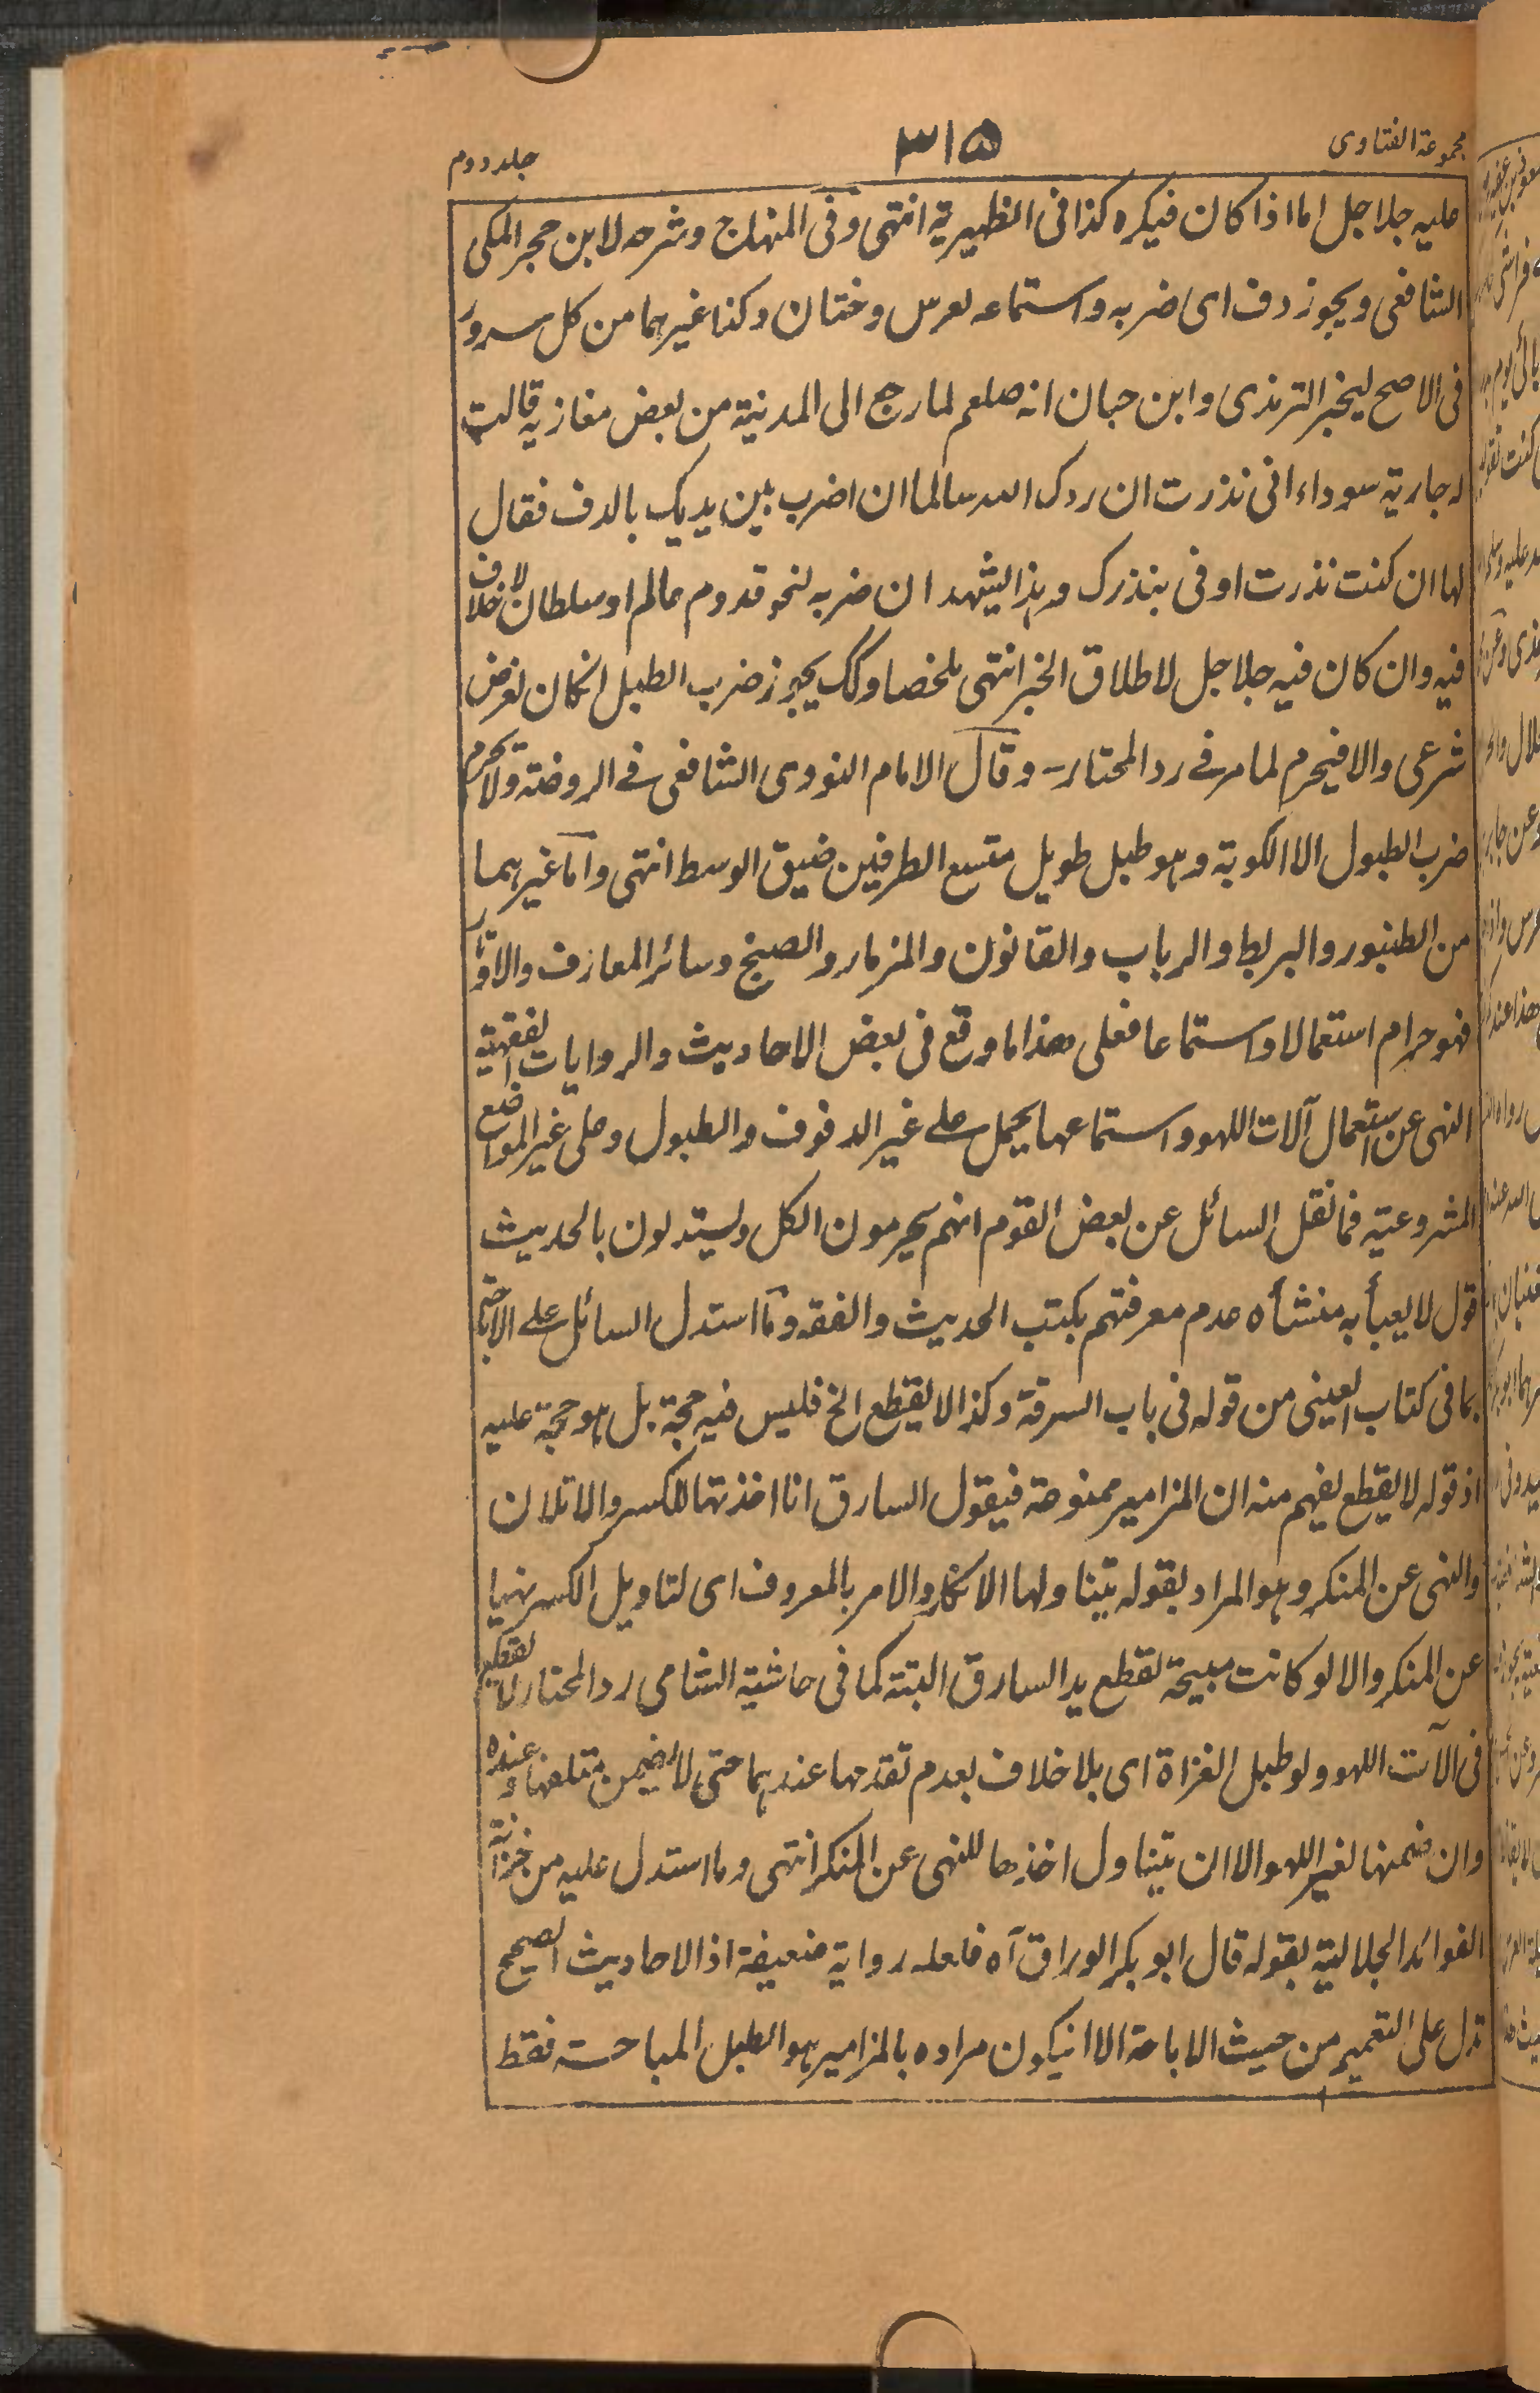 مجموعة الفتاوى
۳۱۵
جلد دوم
عليه جلاجل اما اذا كان فيكره كذا فى الظهيرية انتهى وفى المنهاج وشرحه لابن حجر المكى
الشافعى ويجوز دف اى ضربه واستماعه لعرس وختان وكذا غيرهما من كل سرور
فى الاصح لخبر الترمذى وابن حبان انه صلعم لما رجع الى المدينة من بعض مغازيه قالت
له جارية سوداء انى نذرت ان ردك الله سالما ان اضرب بين يديك بالدف فقال
لها ان كنت نذرت اوفى بنذرك وهذا يشهد ان ضربه لنحو قدوم عالم او سلطان لا خلاف
فيه وان كان فيه جلاجل لاطلاق الخبر انتهى ملخصا وكك يجوز ضرب الطبل انكان لغرض
شرعى والا فيحرم لما مر فے رد المحتار - وقال الامام النووى الشافعى فے الروضة ولا يحرم
ضرب الطبول الا الكوبة وهو طبل طويل متسع الطرفين ضيق الوسط انتهى واما غيرهما
من الطنبور والبربط والرباب والقانون والمزمار والصنج وسائر المعازف والاوتار
فهو حرام استعمالا واستماعا فعلى هذا ما وقع فى بعض الاحاديث والروايات الفقهية
النهى عن استعمال آلات اللهو واستماعها يحمل علے غير الدفوف والطبول وعلى غير المواضع
المشروعية فما نقل السائل عن بعض القوم انهم يحرمون الكل ويستدلون بالحديث
قول لا يعبأ به منشأه عدم معرفتهم بكتب الحديث والفقه وما استدل السائل علے الاباحة
بما فى كتاب العينى من قوله فى باب السرقة وكذا لا يقطع الخ فليس فيه حجة بل هو حجة عليه
اذ قوله لا يقطع يفهم منه ان المزامير ممنوعة فيقول السارق انا اخذتها للكسر والاتلان
والنهى عن المنكر وهو المراد بقوله يتناولها الانكار والامر بالمعروف اى لتاويل الكسر نهيا
عن المنكر والا لو كانت مبيحة لقطع يد السارق البتة كما فى حاشية الشامى رد المحتار لا يقطع
فى الآت اللهو ولو طبل الغزاة اى بلا خلاف بعدم تقدمها عندهما حتى لا يضمن متلفها وعنده
وان ضمنها لغير اللهو الا ان يتناول اخذها للنهى عن المنكر انتهى وما استدل عليه من خزانة
الفوائد الجلالية بقوله قال ابو بكر الوراق آه فلعله رواية ضعيفة اذ الاحاديث الصحيح
تدل على التعميم من حيث الاباحة الا انيكون مراده بالمزامير هو الطبل المباحة فقط